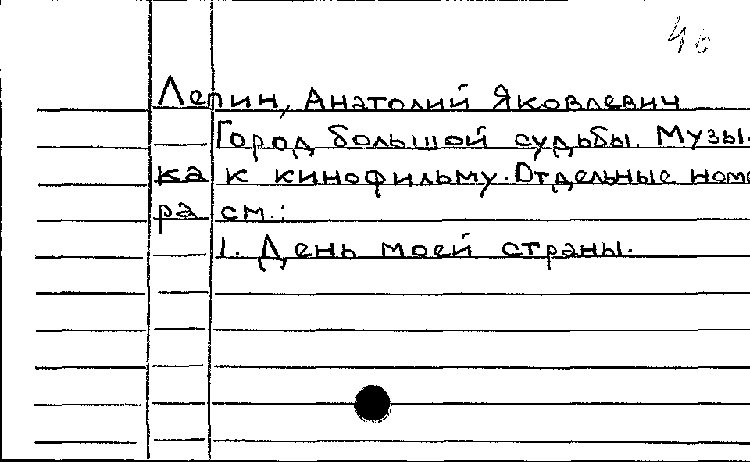 46
Лепин, Анатолий Яковлевич
Город большой судьбы. Музы-
ка к кинофильму. Отдельные номе
ра см.:
1. День моей страны.